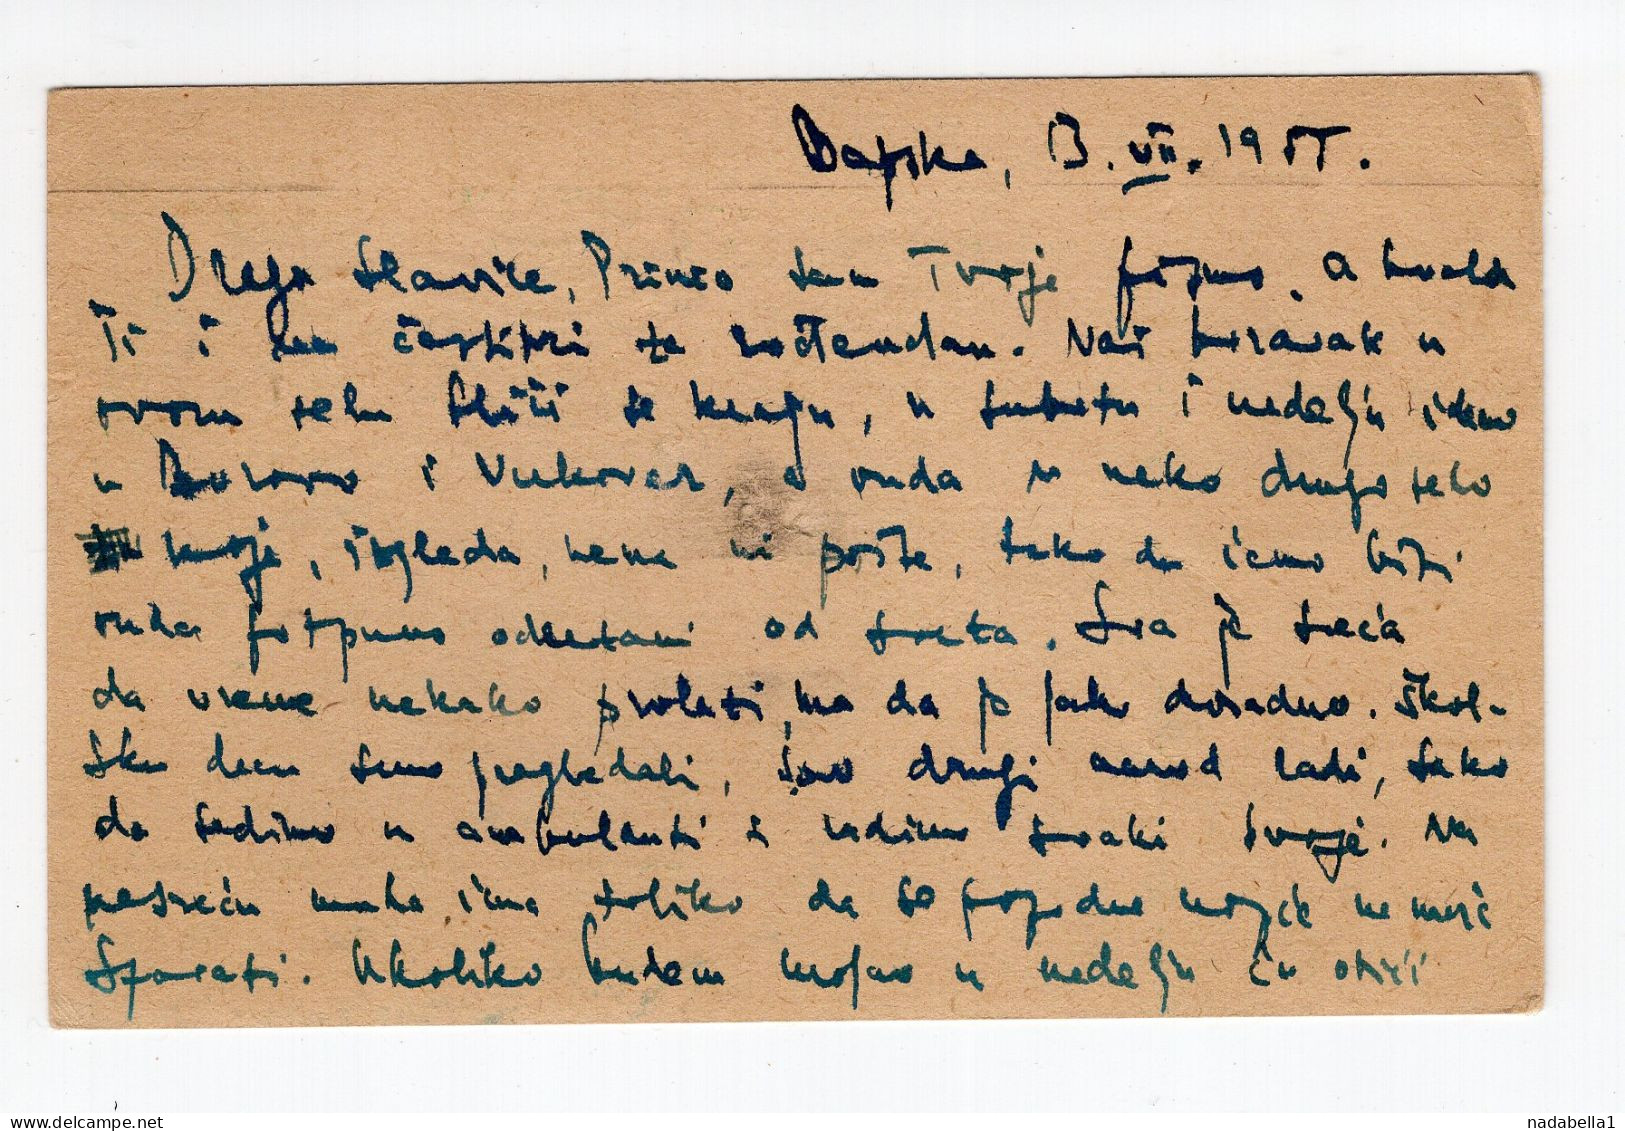 Bapska, 13. VII. 1955.
Draga Slavice, Primio sam Tvoje pismo, a hvala
Ti i na čestitci za rođendan. Naš boravak u
ovom selu bliži se kraju, u subotu i nedelju idemo
u Borovo i Vukovar, a onda u neko drugo selo
koje, izgleda, nema ni pošte, tako da ćemo biti
onda potpuno odsečeni od sveta. Sva je sreća
da vreme nekako prolazi, ma da je jako dosadno. Škol-
sku decu smo pregledali, a drugi narod radi, tako
da sedimo u ambulanti i radimo svaki svoje. Na
nesreću muha ima toliko da se popodne uopće ne može
spavati. Ukoliko budem mogao u nedelju ću otići
nadabella1